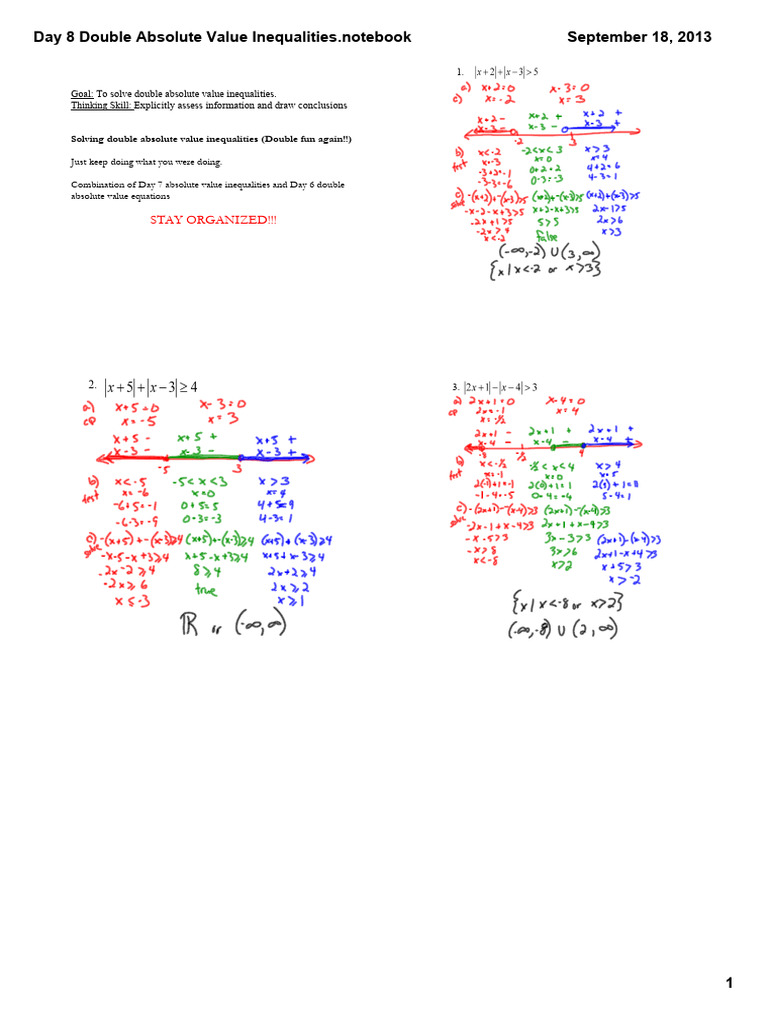 Day 8 Double Absolute Value Inequalities.notebook
September 18, 2013
Goal: To solve double absolute value inequalities.
Thinking Skill: Explicitly assess information and draw conclusions
Solving double absolute value inequalities (Double fun again!!)
Just keep doing what you were doing.
Combination of Day 7 absolute value inequalities and Day 6 double
absolute value equations
STAY ORGANIZED!!!
1. |x+2|+|x−3|>5
a) x+2=0 x-3=0
c) x=-2 x=3
x+2 - x+2 + x+2 +
x-3 - x-3 - x-3 +
-2 3
b) x<-2 -2<x<3 x>3
test x=-3 x=0 x=4
-3+2=-1 0+2=2 4+2=6
-3-3=-6 0-3=-3 4-3=1
c) -(x+2)+-(x-3)>5 (x+2)+-(x-3)>5 (x+2)+(x-3)>5
solve -x-2-x+3>5 x+2-x+3>5 2x-1>5
-2x+1>5 5>5 2x>6
-2x>4 false x>3
x<-2
(-∞,-2) ∪ (3,∞)
{x|x<-2 or x>3}
2. |x+5|+|x−3|≥4
a) x+5=0 x-3=0
CP x=-5 x=3
x+5 - x+5 + x+5 +
x-3 - x-3 - x-3 +
-5 3
b) x<-5 -5<x<3 x>3
test x=-6 x=0 x=4
-6+5=-1 0+5=5 4+5=9
-6-3=-9 0-3=-3 4-3=1
c) -(x+5)+-(x-3)≥4 (x+5)+-(x-3)≥4 (x+5)+(x-3)≥4
solve -x-5-x+3≥4 x+5-x+3≥4 x+5+x-3≥4
-2x-2≥4 8≥4 2x+2≥4
-2x≥6 true 2x≥2
x≤-3 x≥1
ℝ or (-∞,∞)
3. |2x+1|−|x−4|>3
a) 2x+1=0 x-4=0
CP 2x=-1 x=4
x=-1/2
2x+1 - 2x+1 + 2x+1 +
x-4 - x-4 - x-4 +
-8 -1/2 4
b) x<-1/2 -1/2<x<4 x>4
test x=-1 x=0 x=5
2(-1)+1=-1 2(0)+1=1 2(5)+1=11
-1-4=-5 0-4=-4 5-4=1
c) -(2x+1)-(x-4)>3 (2x+1)-(x-4)>3
solve -2x-1+x-4>3 2x+1+x-4>3
-x-5>3 3x-3>3 (2x+1)-(x-4)>3
-x>8 3x>6 2x+1-x+4>3
x<-8 x>2 x+5>3
x>-2
{x|x<-8 or x>2}
(-∞,-8) ∪ (2,∞)
1